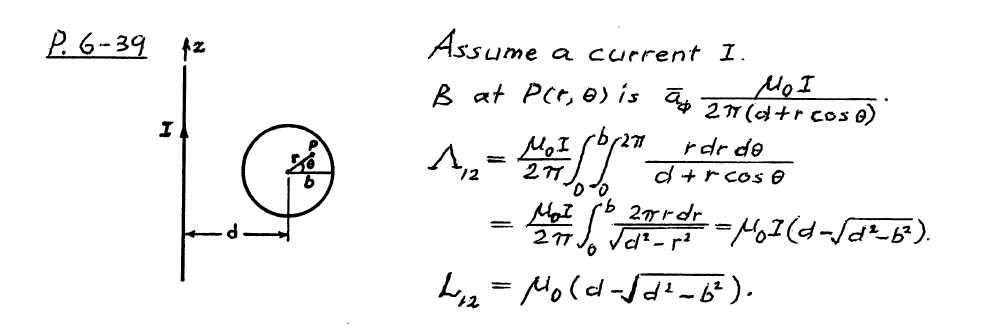 P. 6-39
z
I
P
r
θ
b
d
Assume a current I.
B at P(r, θ) is ā_φ μ₀I / 2π(d + r cos θ).
Λ₁₂ = μ₀I/2π ∫₀ᵇ ∫₀²π r dr dθ / d + r cos θ
= μ₀I/2π ∫₀ᵇ 2π r dr / √(d² - r²) = μ₀I (d - √(d² - b²)).
L₁₂ = μ₀ (d - √(d² - b²)).